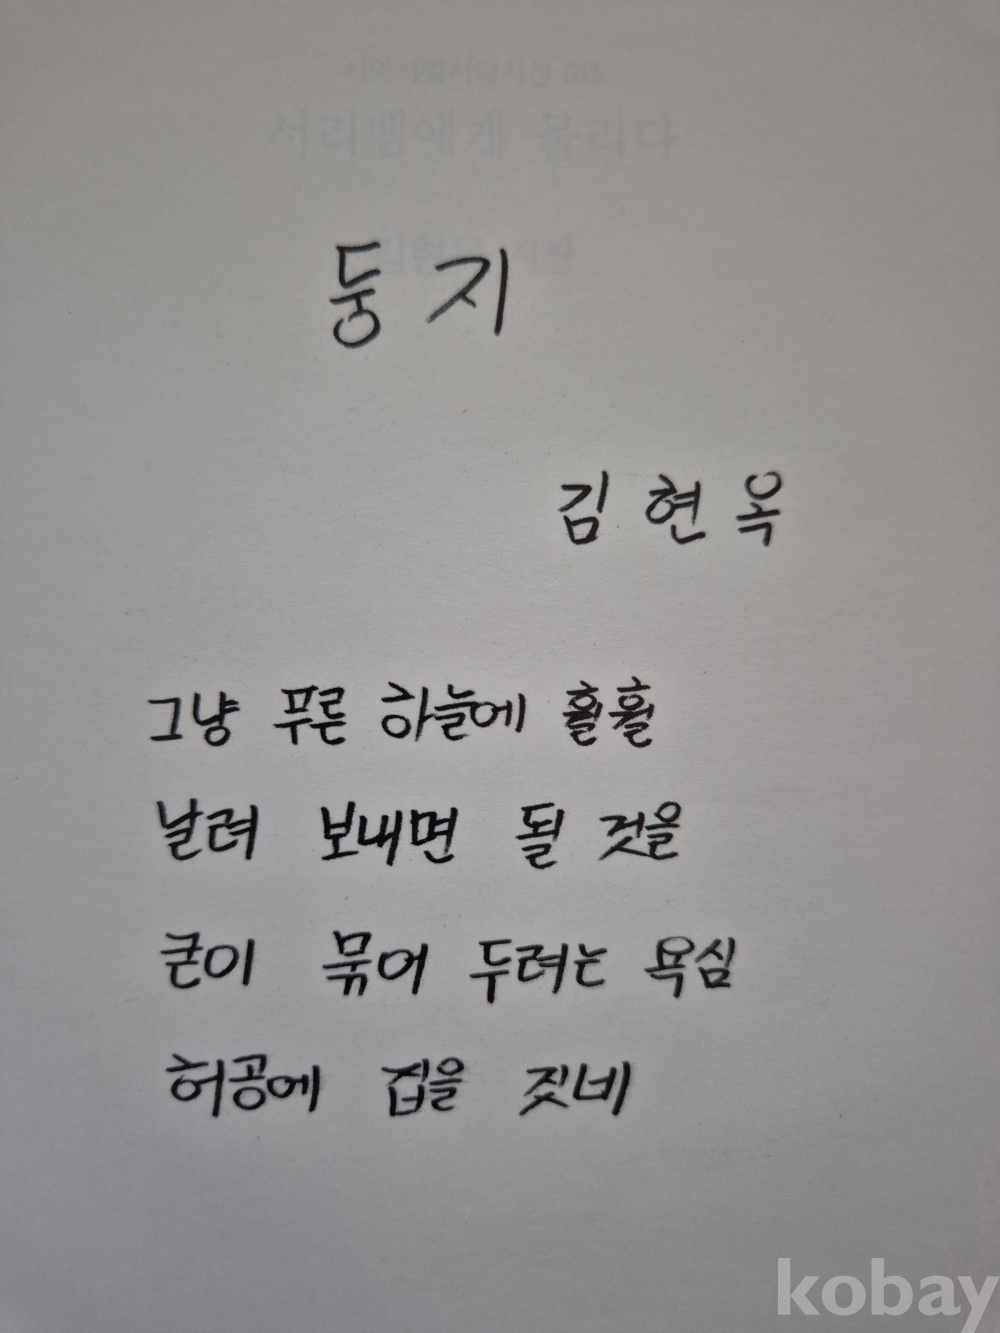 서리뱀에게 물리다
둥지
김현옥
그냥 푸른 하늘에 훨훨
날려 보내면 될 것을
굳이 묶어 두려는 욕심
허공에 집을 짓네
kobay